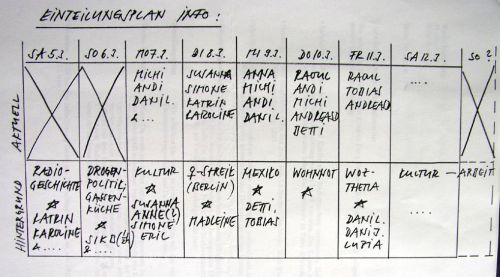 EINTEILUNGSPLAN INFO:
SA 5.3. SO 6.3. MO 7.3. DI 8.3. MI 9.3. DO 10.3. FR 11.3. SA 12.3. SO ?
AKTUELL
MICHI
ANDI
DANIL.
& ....
SUSANNA
SIMONE
KATRIN
KAROLINE
ANNA
MICHI
ANDI.
DANIL.
RAOUL
ANDI
MICHI
ANDREAS D
DETTI
RAOUL
TOBIAS
ANDREAS D
....
HINTERGRUND
RADIO-
GESCHICHTE
KATRIN
KAROLINE
& ....
DROGEN-
POLITIK,
GASSEN-
KÜCHE
& ....
KULTUR
SUSANNA
ANNE(?)
SIMONE
ERIL
♀-STREIK
(BERLIN)
MADLEINE
MEXIKO
DETTI,
TOBIAS
WOHNNOT
WOZ-
THEMA
DANIL.
DANIJ.
LUZIA
KULTUR — ARBEIT
....